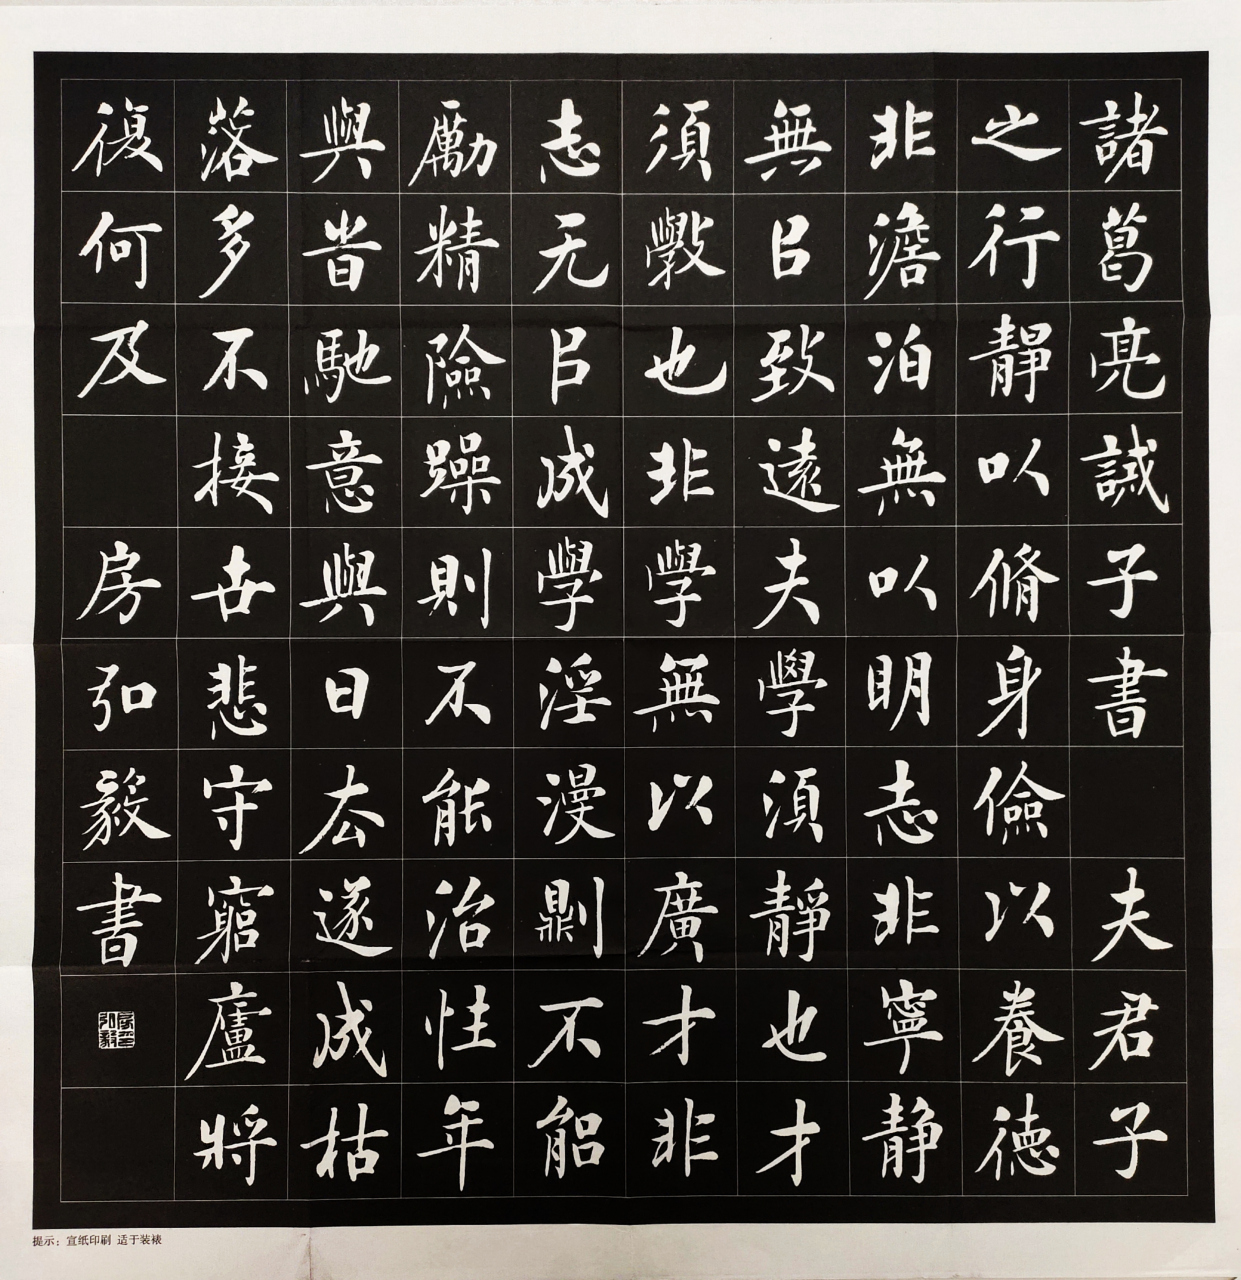 諸葛亮誡子書 夫君子
之行靜以脩身儉以養德
非澹泊無以明志非寧静
無㠯致遠夫學須靜也才
須斆也非學無以廣才非
志无㠯成學淫漫劓不能
勵精險躁則不能治性年
與旹馳意與日厺遂成枯
落多不接世悲守窮廬將
復何及 房弘毅書
房弘毅印
提示：宣纸印刷 适于装裱